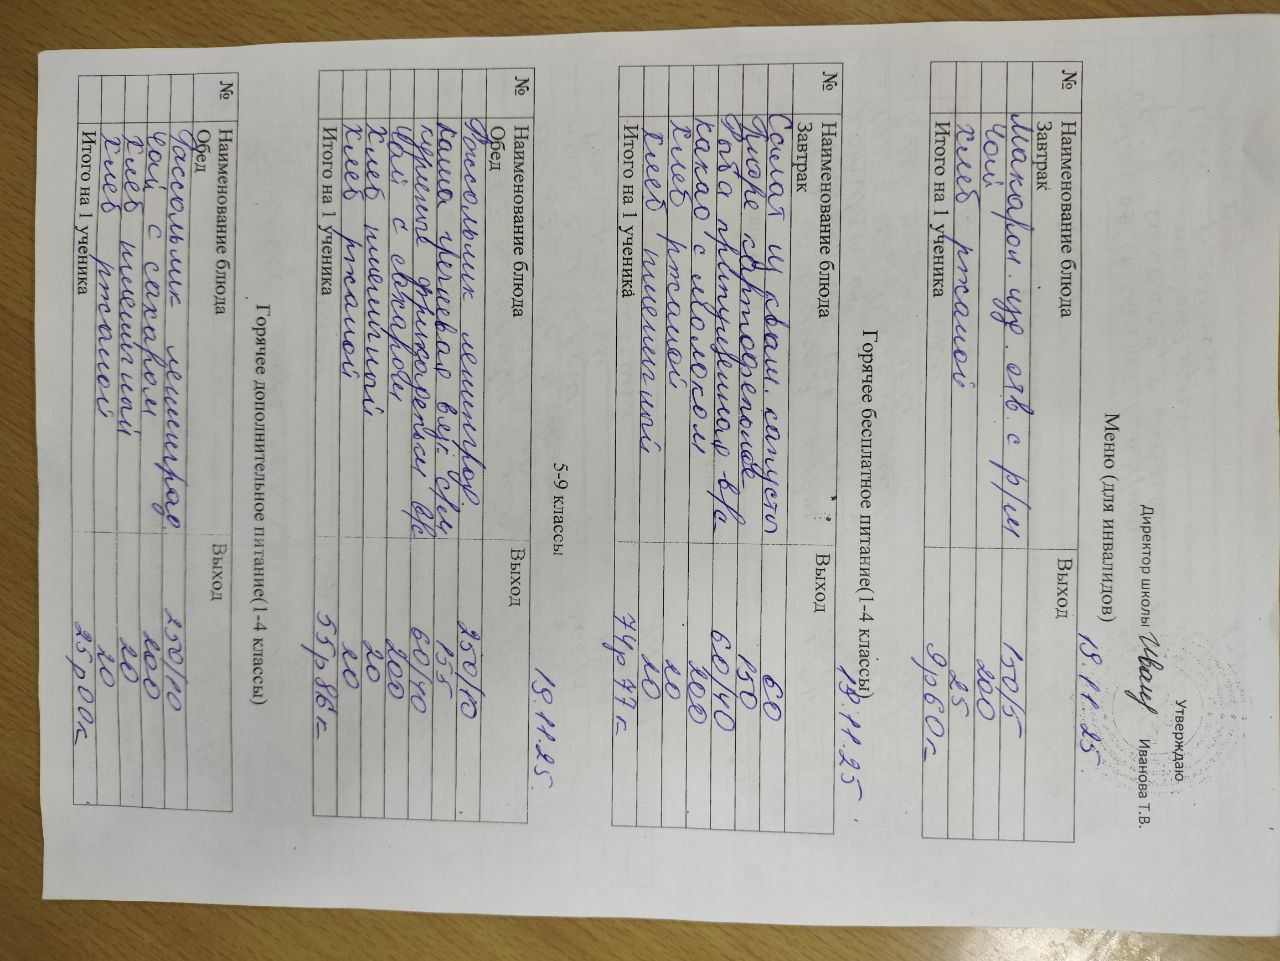 Утверждаю
Директор школы Иванова Т.В.
Меню (для инвалидов) 19.11.25
№ Наименование блюда Выход
Завтрак
Макарон. изд. отв. с р/м 150/5
Чай 200
Хлеб ржаной 25
Итого на 1 ученика 9р60к
Горячее бесплатное питание(1-4 классы) 19.11.25
№ Наименование блюда Выход
Завтрак
Салат из кваш. капусты 60
Пюре картофельное 150
Рыба припущенная в/с 60/40
Какао с молоком 200
Хлеб ржаной 20
Хлеб пшеничный 20
Итого на 1 ученика 74р 77к
5-9 классы 19.11.25.
№ Наименование блюда Выход
Обед
Рассольник ленинград. 250/10
Каша гречневая вязк с/м 155
куриные фрикадельки в/с 60/40
Чай с сахаром 200
Хлеб пшеничный 20
Хлеб ржаной 20
Итого на 1 ученика 55р 86к
Горячее дополнительное питание(1-4 классы)
№ Наименование блюда Выход
Обед
Рассольник ленинград. 250/10
Чай с сахаром 200
Хлеб пшеничный 20
Хлеб ржаной 20
Итого на 1 ученика 25р00к